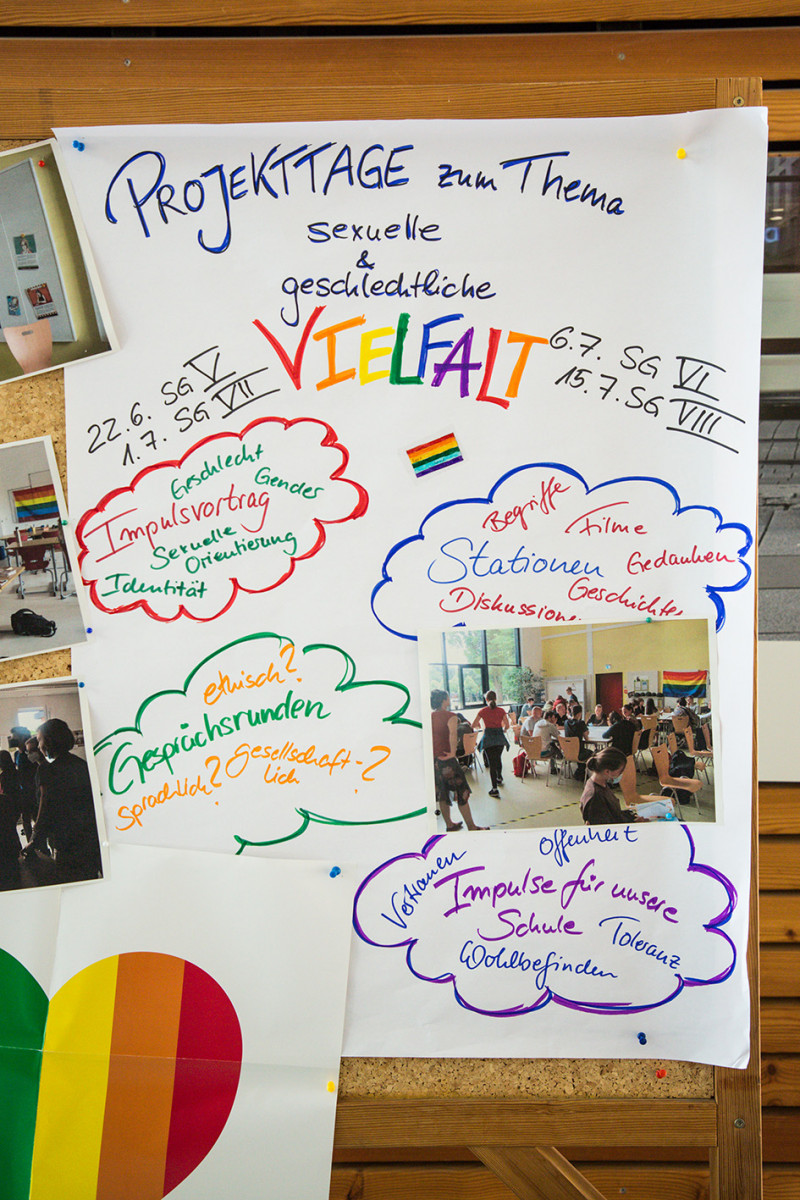 PROJEKTTAGE zum Thema
sexuelle
&
geschlechtliche
VIELFALT
22.6. SG V
1.7. SG VII
6.7. SG VI
15.7. SG VIII
Geschlecht
Gender
Impulsvortrag
Sexuelle
Orientierung
Identität
Begriffe
Filme
Stationen
Gedanken
Geschichte
Diskussion
ethisch?
Gesprächsrunden
Sprachlich?
Gesellschaft-
lich?
Offenheit
Vertrauen
Impulse für unsere
Schule
Toleranz
Wohlbefinden